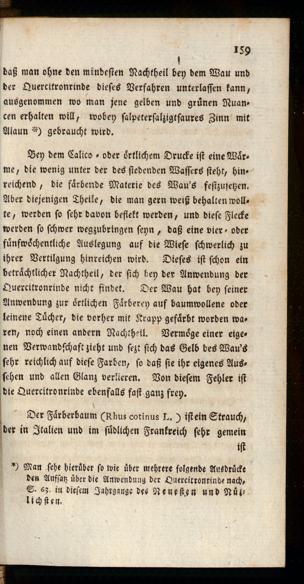 159
daß man ohne den mindesten Nachtheil bey dem Wau und
der Quercitronrinde dieses Verfahren unterlassen kann,
ausgenommen wo man jene gelben und grünen Nuan-
cen erhalten will, wobey salpetersalzigtsaures Zinn mit
Alaun *) gebraucht wird.
Bey dem Calico- oder örtlichem Drucke ist eine Wär-
me, die wenig unter der des siedenden Wassers steht, hin-
reichend, die färbende Materie des Wau's festzusetzen.
Aber diejenigen Theile, die man gern weiß behalten woll-
te, werden so sehr davon beflekt werden, und diese Flecke
werden so schwer wegzubringen seyn, daß eine vier- oder
fünfwöchentliche Auslegung auf die Wiese schwerlich zu
ihrer Vertilgung hinreichen wird. Dieses ist schon ein
beträchtlicher Nachtheil, der sich bey der Anwendung der
Quercitronrinde nicht findet. Der Wau hat bey seiner
Anwendung zur örtlichen Färberey auf baumwollene oder
leinene Tücher, die vorher mit Krapp gefärbt worden wa-
ren, noch einen andern Nachtheil. Vermöge einer eige-
nen Verwandschaft zieht und sezt sich das Gelb des Wau's
sehr reichlich auf diese Farben, so daß sie ihr eigenes Aus-
sehen und allen Glanz verlieren. Von diesem Fehler ist
die Quercitronrinde ebenfalls fast ganz frey.
Der Färberbaum (Rhus cotinus L.) ist ein Strauch,
der in Italien und im südlichen Frankreich sehr gemein
ist
*) Man sehe hierüber so wie über mehrere folgende Ausdrücke
den Aufsatz über die Anwendung der Quercitronrinde nach,
S. 63. in diesem Jahrgange des Neuesten und Nüz-
lichsten.